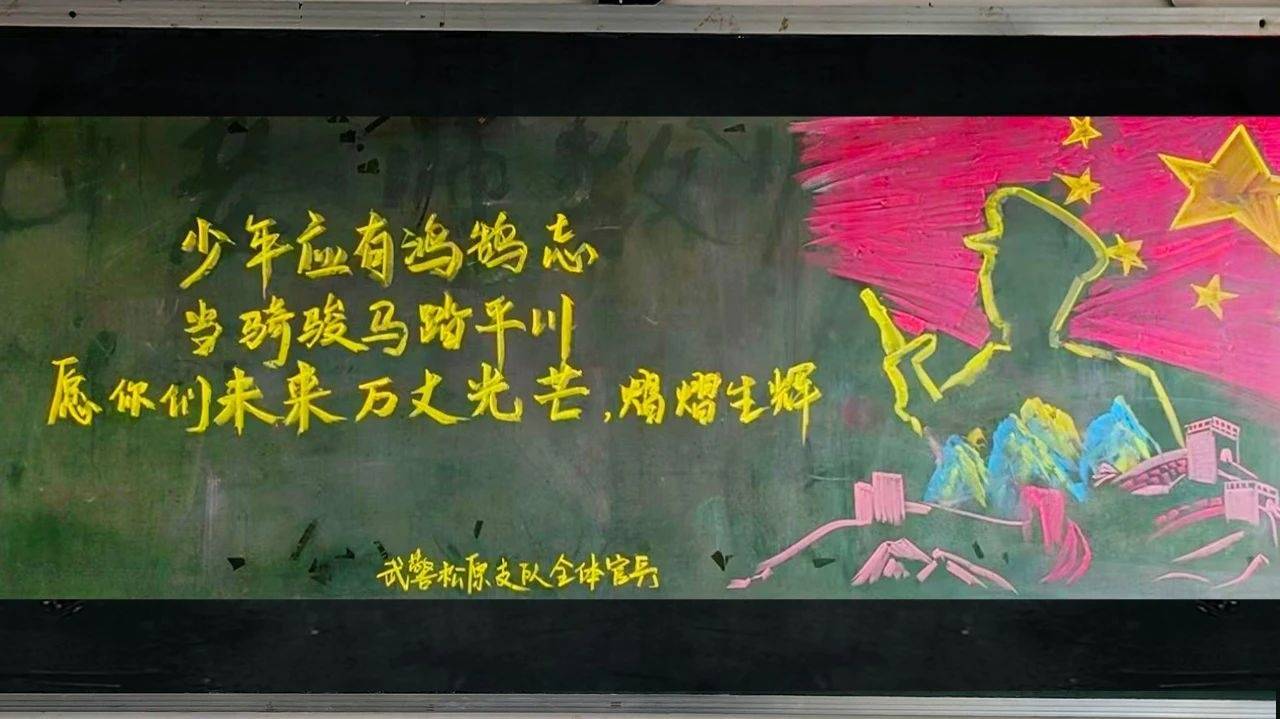 少年应有鸿鹄志
当骑骏马踏平川
愿你们未来万丈光芒,熠熠生辉
武警松原支队全体官兵